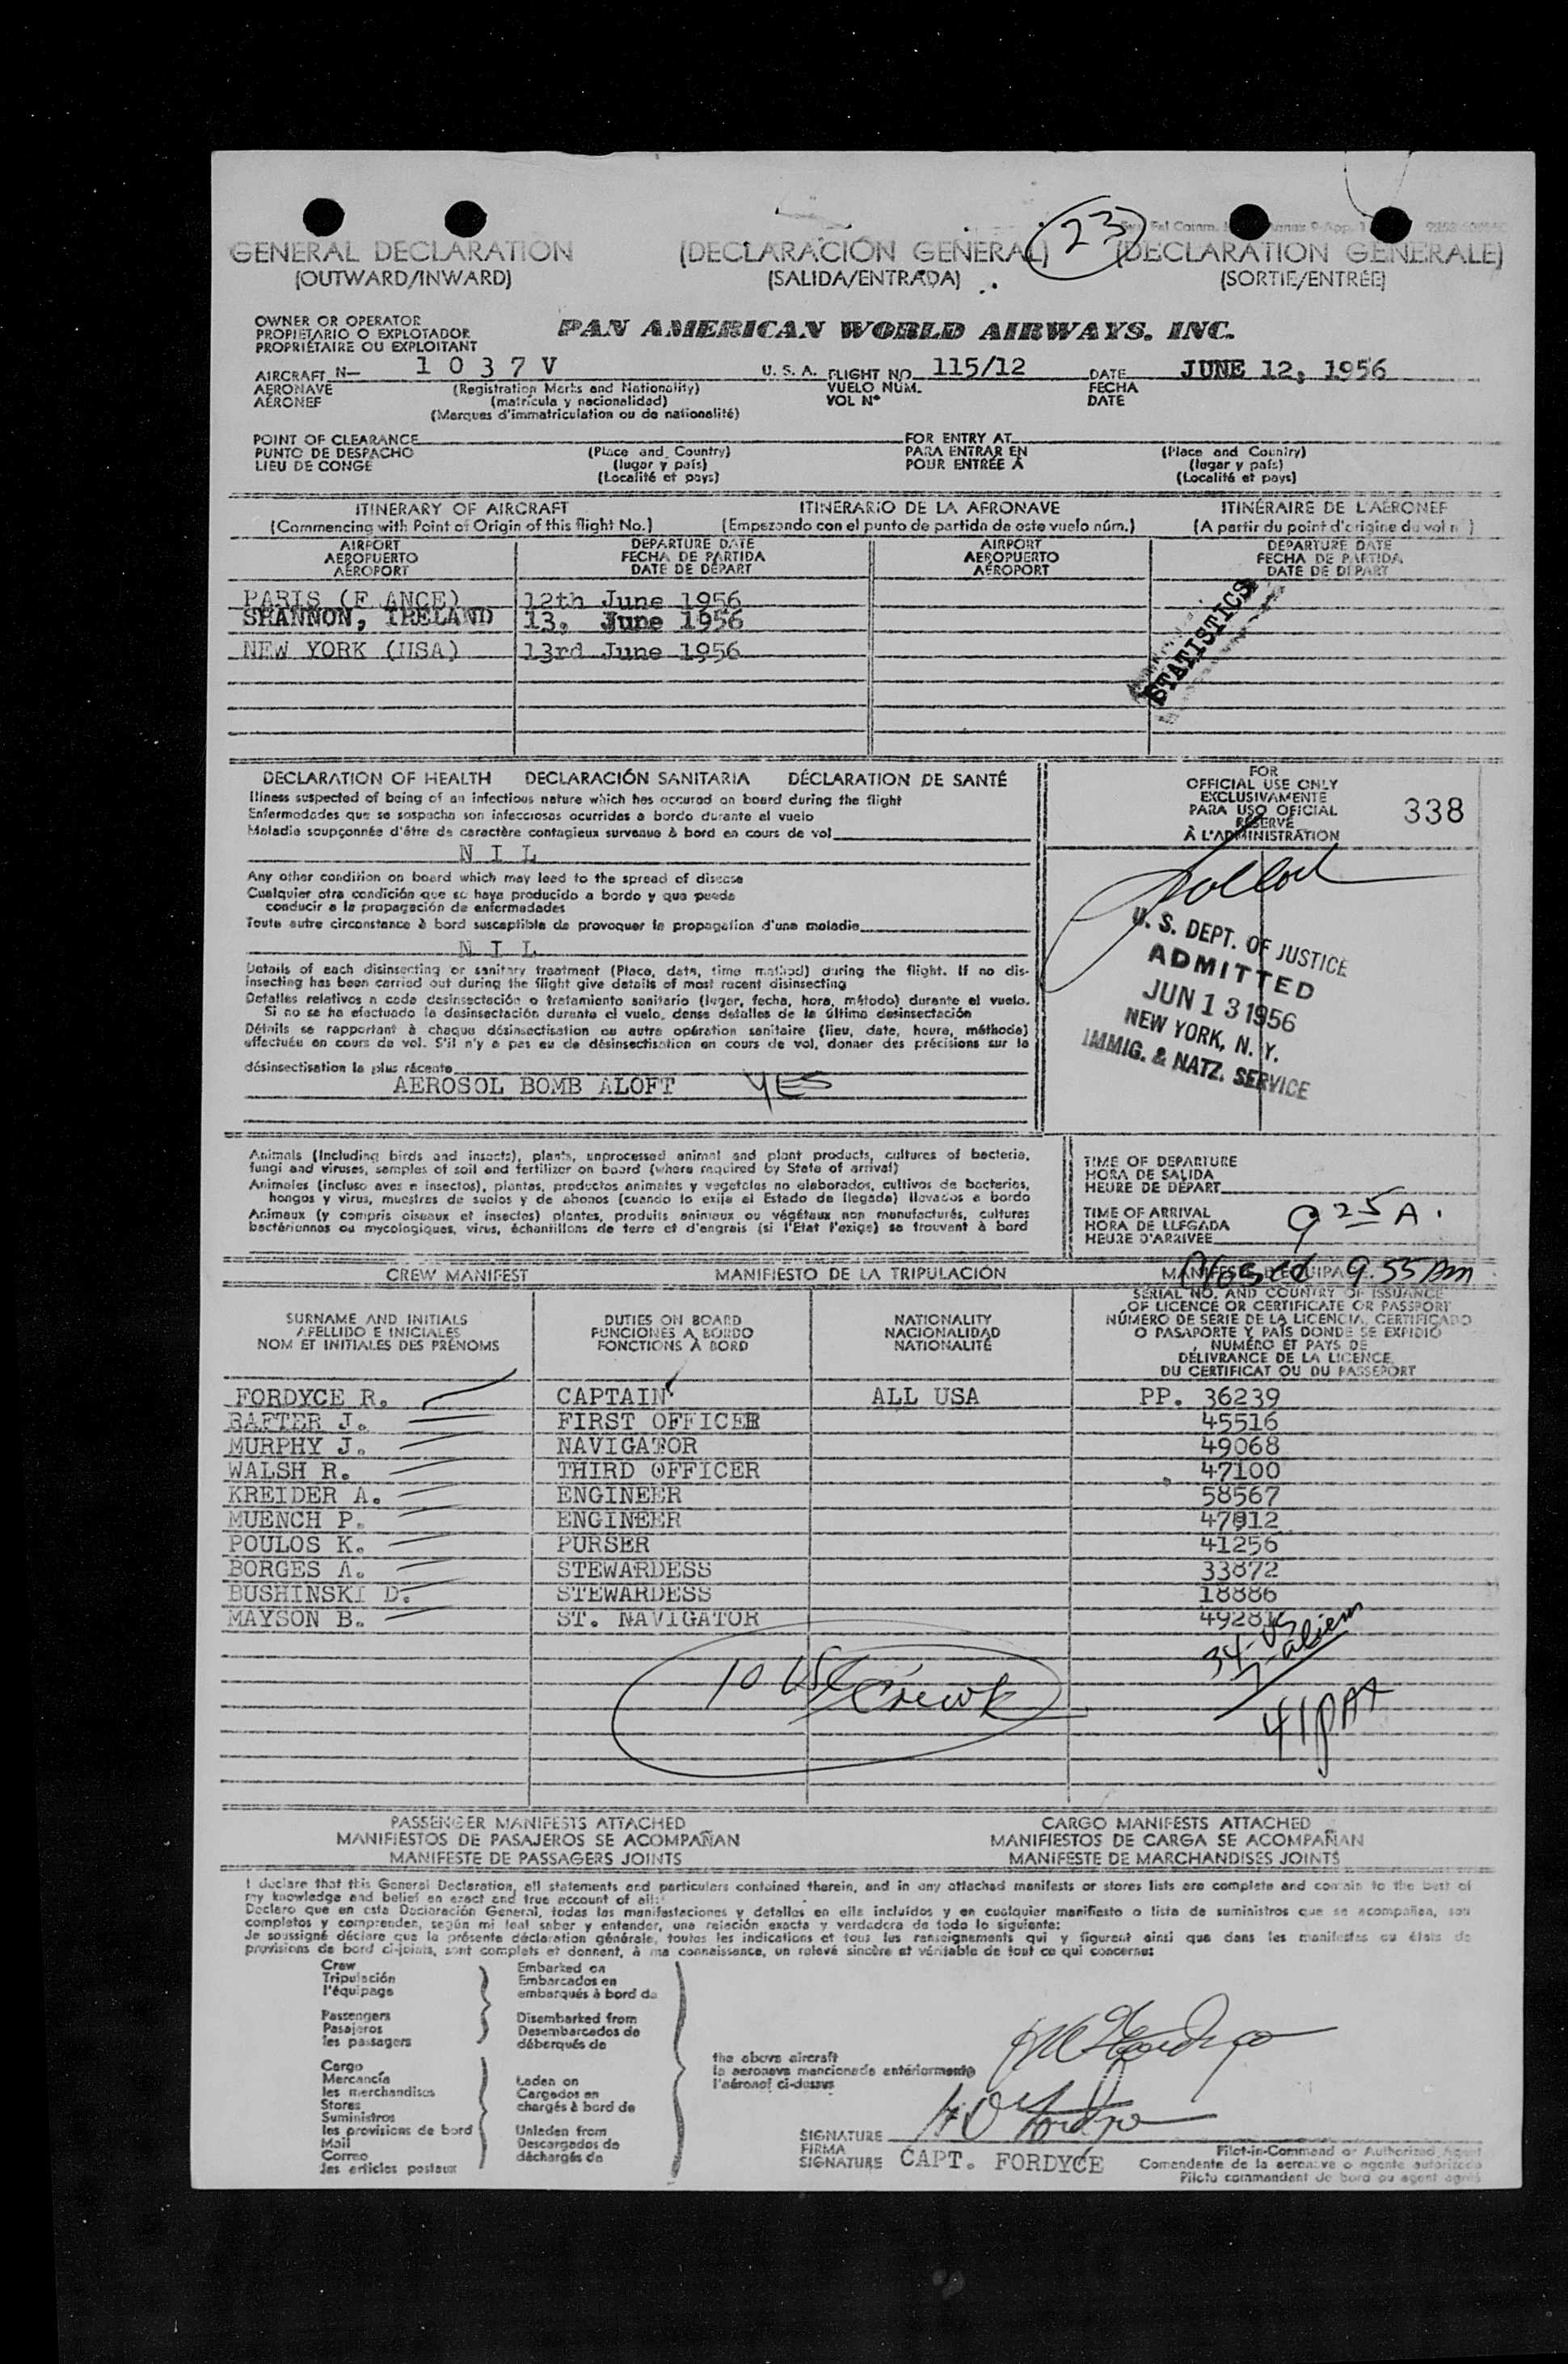 GENERAL DECLARATION (DECLARACIÓN GENERAL) 23 (DECLARATION GENERALE)
(OUTWARD/INWARD) (SALIDA/ENTRADA) (SORTIE/ENTRÉE)
OWNER OR OPERATOR
PROPIETARIO O EXPLOTADOR
PROPRIÉTAIRE OU EXPLOITANT
PAN AMERICAN WORLD AIRWAYS, INC.
AIRCRAFT N— 1 0 3 7 V U. S. A. FLIGHT NO. 115/12 DATE JUNE 12, 1956
AERONAVE (Registration Marks and Nationality) VUELO NÚM. FECHA
AÉRONEF (matrícula y nacionalidad) VOL Nº DATE
(Marques d'immatriculation ou de nationalité)
POINT OF CLEARANCE FOR ENTRY AT
PUNTO DE DESPACHO (Place and Country) PARA ENTRAR EN (Place and Country)
LIEU DE CONGE (lugar y país) POUR ENTRÉE À (lugar y país)
(Localité et pays) (Localité et pays)
ITINERARY OF AIRCRAFT ITINERARIO DE LA AERONAVE ITINÉRAIRE DE L'AÉRONEF
(Commencing with Point of Origin of this flight No.) (Empezando con el punto de partida de este vuelo núm.) (A partir du point d'origine du vol n°)
AIRPORT DEPARTURE DATE AIRPORT DEPARTURE DATE
AEROPUERTO FECHA DE PARTIDA AEROPUERTO FECHA DE PARTIDA
AÉROPORT DATE DE DÉPART AÉROPORT DATE DE DÉPART
PARIS (F ANCE) 12th June 1956
SHANNON, IRELAND 13, June 1956
NEW YORK (USA) 13rd June 1956
STATISTICS
DECLARATION OF HEALTH DECLARACIÓN SANITARIA DÉCLARATION DE SANTÉ
Illness suspected of being of an infectious nature which has occured on board during the flight
Enfermedades que se sospecha son infecciosas ocurridas a bordo durante el vuelo
Maladie soupçonnée d'être de caractère contagieux survenue à bord en cours de vol
N I L
Any other condition on board which may lead to the spread of disease
Cualquier otra condición que se haya producido a bordo y que pueda
conducir a la propagación de enfermedades
Toute autre circonstance à bord susceptible de provoquer la propagation d'une maladie
N I L
Details of each disinsecting or sanitary treatment (Place, date, time method) during the flight. If no dis-
insecting has been carried out during the flight give details of most recent disinsecting
Detalles relativos a cada desinsectación o tratamiento sanitario (lugar, fecha, hora, método) durante el vuelo.
Si no se ha efectuado la desinsectación durante el vuelo, dense detalles de la última desinsectación
Détails se rapportant à chaque désinsectisation ou autre opération sanitaire (lieu, date, heure, méthode)
effectuée en cours de vol. S'il n'y a pas eu de désinsectisation en cours de vol, donner des précisions sur la
désinsectisation la plus récente
AEROSOL BOMB ALOFT YES
FOR
OFFICIAL USE ONLY
EXCLUSIVAMENTE
PARA USO OFICIAL
RÉSERVÉ
À L'ADMINISTRATION
338
U. S. DEPT. OF JUSTICE
ADMITTED
JUN 13 1956
NEW YORK, N. Y.
IMMIG. & NATZ. SERVICE
Animals (Including birds and insects), plants, unprocessed animal and plant products, cultures of bacteria,
fungi and viruses, samples of soil and fertilizer on board (where required by State of arrival)
Animales (incluso aves e insectos), plantas, productos animales y vegetales no elaborados, cultivos de bacterias,
hongos y virus, muestras de suelos y de abonos (cuando lo exija el Estado de llegada) llevados a bordo
Animaux (y compris oiseaux et insectes) plantes, produits animaux ou végétaux non manufacturés, cultures
bactériennes ou mycologiques, virus, échantillons de terre et d'engrais (si l'Etat l'exige) se trouvant à bord
TIME OF DEPARTURE
HORA DE SALIDA
HEURE DE DÉPART
TIME OF ARRIVAL
HORA DE LLEGADA
HEURE D'ARRIVÉE
9 25 A.
9 55 AM
CREW MANIFEST MANIFIESTO DE LA TRIPULACIÓN
SURNAME AND INITIALS DUTIES ON BOARD NATIONALITY SERIAL NO. AND COUNTRY OF ISSUANCE
APELLIDO E INICIALES FUNCIONES A BORDO NACIONALIDAD OF LICENCE OR CERTIFICATE OR PASSPORT
NOM ET INITIALES DES PRÉNOMS FONCTIONS À BORD NATIONALITÉ NÚMERO DE SERIE DE LA LICENCIA, CERTIFICADO
O PASAPORTE Y PAÍS DONDE SE EXPIDIÓ
NUMÉRO ET PAYS DE
DÉLIVRANCE DE LA LICENCE
DU CERTIFICAT OU DU PASSEPORT
FORDYCE R. CAPTAIN ALL USA PP. 36239
RAFTER J. FIRST OFFICER 45516
MURPHY J. NAVIGATOR 49068
WALSH R. THIRD OFFICER 47100
KREIDER A. ENGINEER 58567
MUENCH P. ENGINEER 47812
POULOS K. PURSER 41256
BORGES A. STEWARDESS 33872
BUSHINSKI D. STEWARDESS 18886
MAYSON B. ST. NAVIGATOR 49281
34-US
7-alien
41 PAX
10 USC Crew
PASSENGER MANIFESTS ATTACHED CARGO MANIFESTS ATTACHED
MANIFIESTOS DE PASAJEROS SE ACOMPAÑAN MANIFIESTOS DE CARGA SE ACOMPAÑAN
MANIFESTE DE PASSAGERS JOINTS MANIFESTE DE MARCHANDISES JOINTS
I declare that this General Declaration, all statements and particulars contained therein, and in any attached manifests or stores lists are complete and contain to the best of
my knowledge and belief an exact and true account of all:
Declaro que en esta Declaración General, todas las manifestaciones y detalles en ella incluídos y en cualquier manifiesto o lista de suministros que se acompañan, son
completos y comprenden, según mi leal saber y entender, una relación exacta y verdadera de todo lo siguiente:
Je soussigné déclare que la présente déclaration générale, toutes les indications et tous les renseignements qui y figurent ainsi que dans les manifestes ou états de
provisions de bord ci-joints, sont complets et donnent, à ma connaissance, un relevé sincère et véritable de tout ce qui concerne:
Crew Embarked on
Tripulación Embarcados en
l'équipage embarqués à bord de
Passengers Disembarked from
Pasajeros Desembarcados de
les passagers débarqués de
Cargo
Mercancía Laden on
les merchandises Cargados en
Stores chargés à bord de
Suministros
les provisions de bord Unladen from
Mail Descargados de
Correo déchargés de
les articles postaux
the above aircraft
la aeronave mencionada anteriormente
l'aéronef ci-dessus
SIGNATURE
FIRMA
SIGNATURE CAPT. FORDYCE
Pilot-in-Command or Authorized Agent
Comandante de la aeronave o agente autorizado
Pilote commandant de bord ou agent agréé